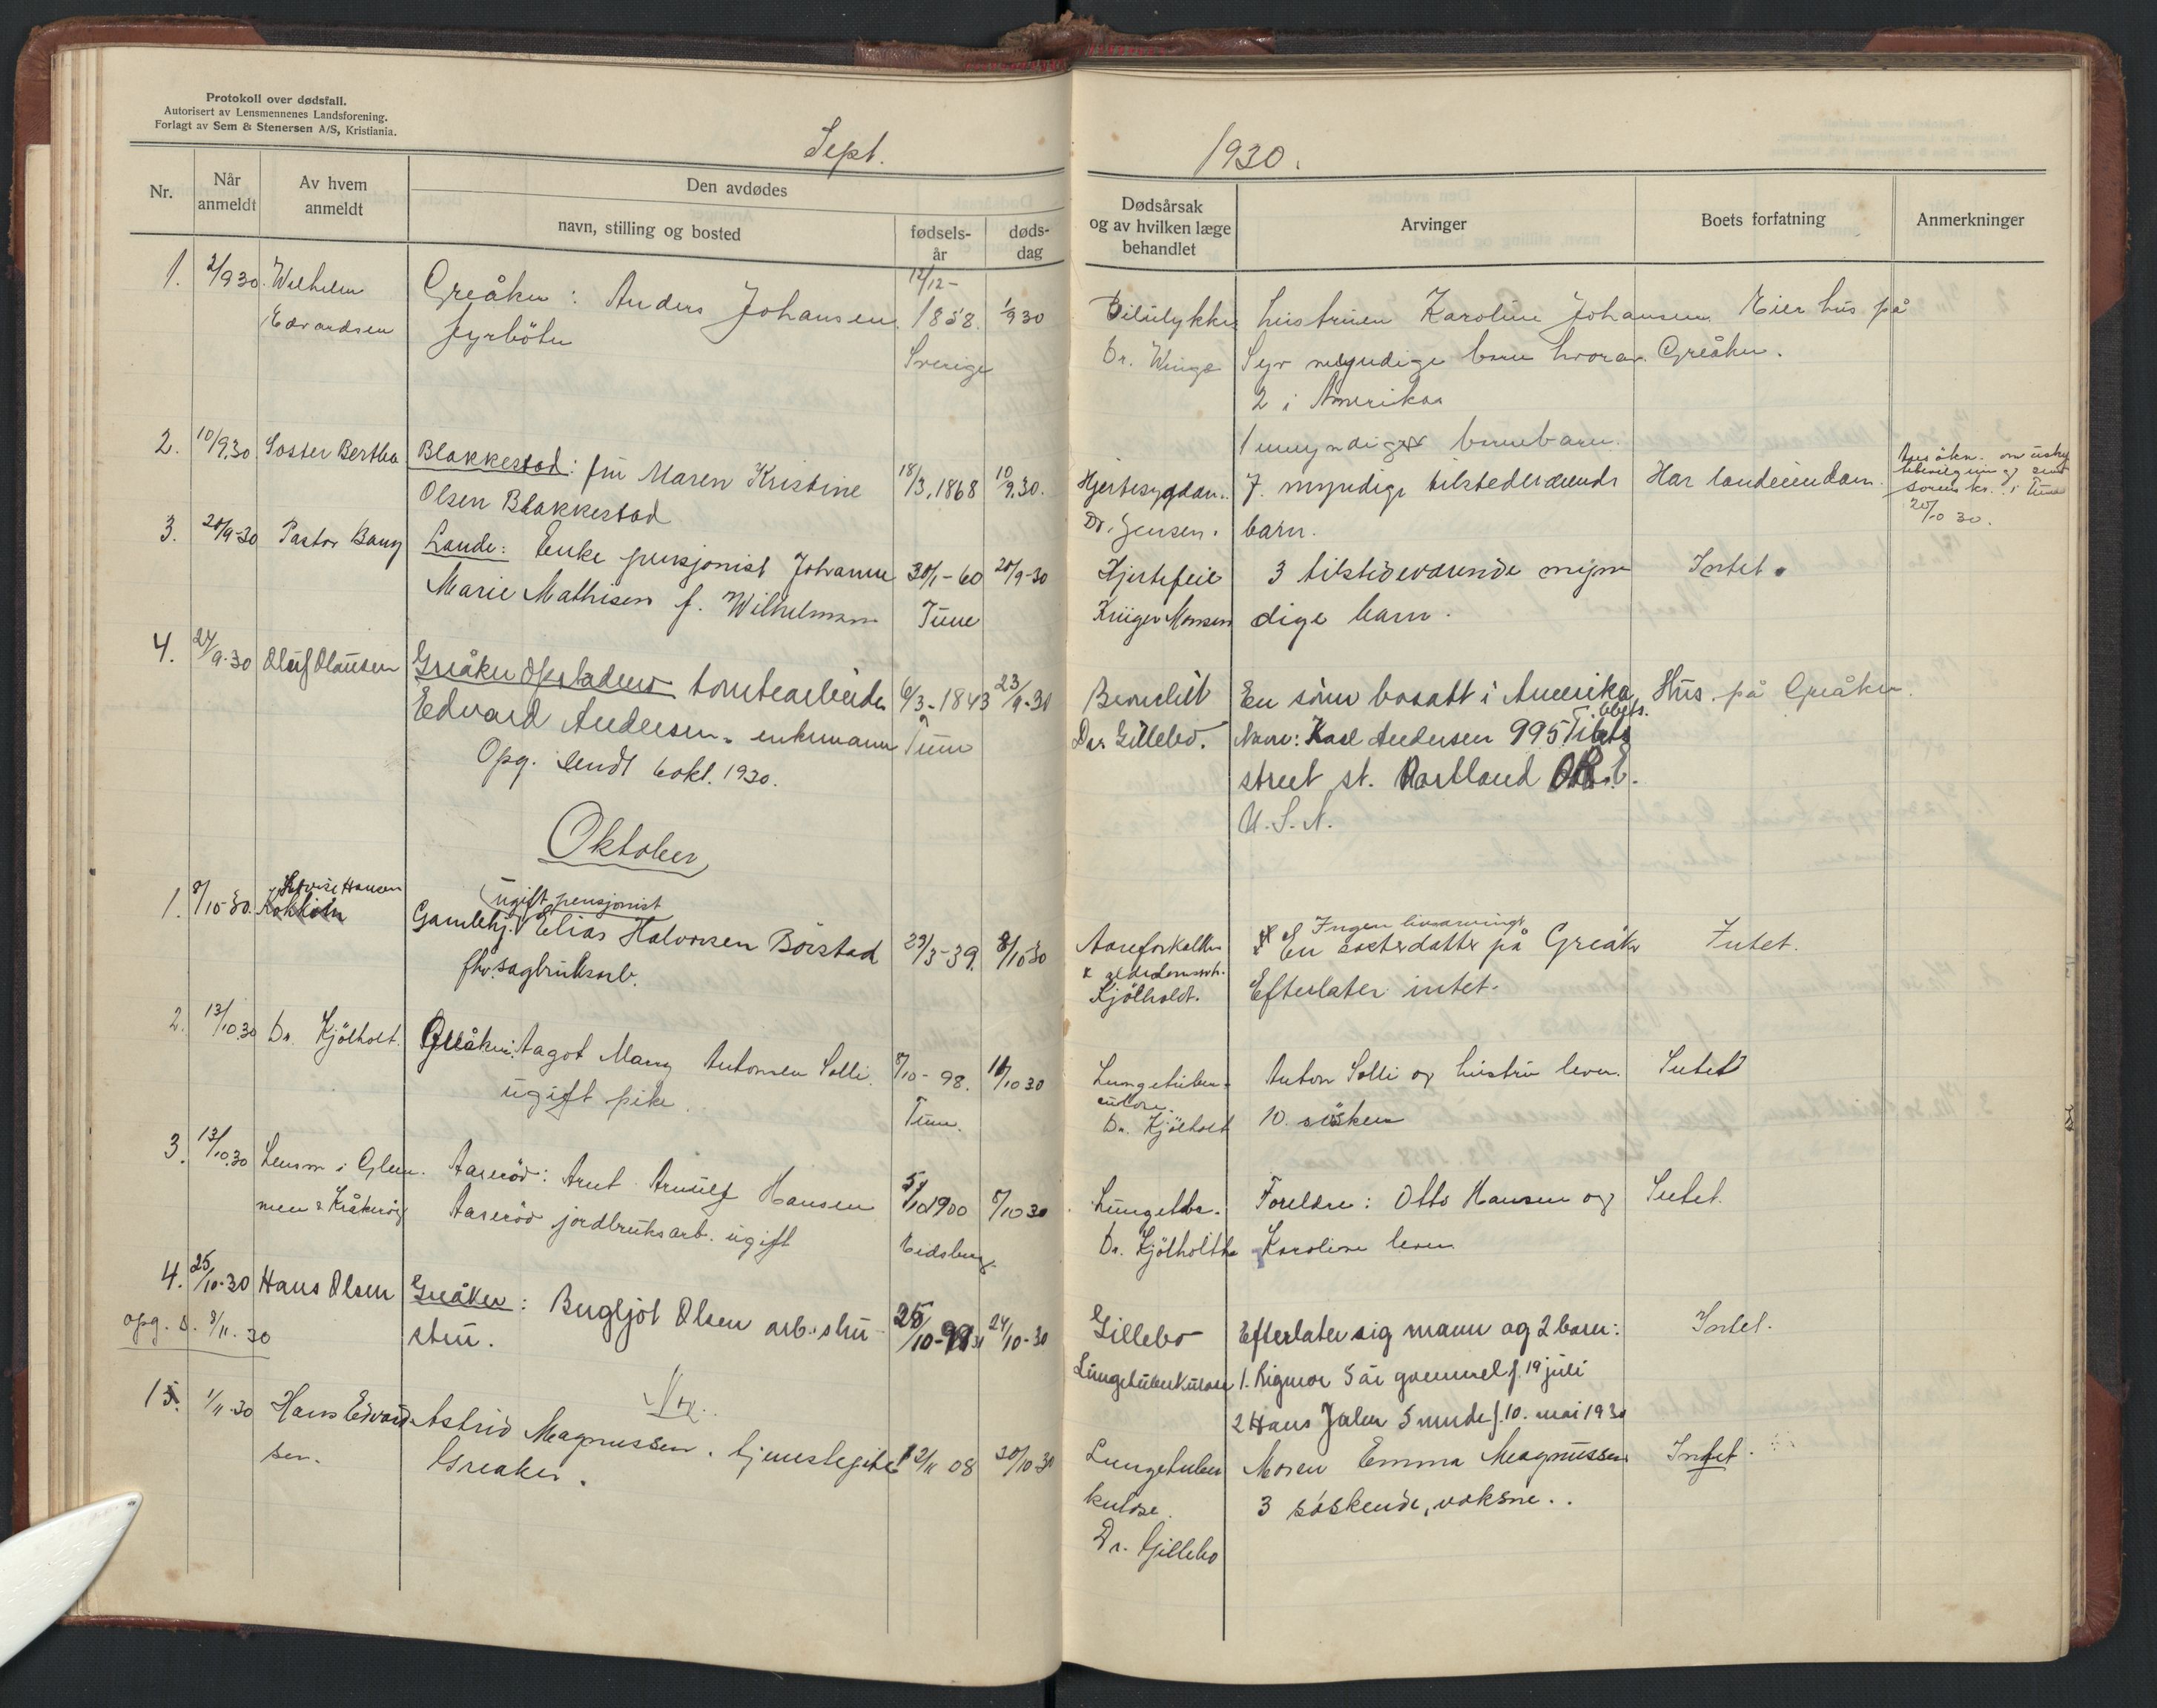 Protokoll over dødsfall.
Autorisert av Lensmennenes Landsforening.
Forlagt av Sem & Stenersen A/S, Kristiania.
Sept.
1930.
Nr.
Når anmeldt
Av hvem anmeldt
Den avdødes
navn, stilling og bosted
fødsels-år
døds-dag
Dødsårsak og av hvilken læge behandlet
Arvinger
Boets forfatning
Anmerkninger
1. 2/9 30. Wilhelm Greåker: Anders Johansen 12/12- 1858. 1/9 30 Bilulykke hustruen Karoline Johansen Eier hus på
Edvardsen fyrböter Sverige Dr. Winge Syv myndige barn hvorav Greåker.
2 i Amerika
1 umyndige barnebarn.
2. 10/9.30 Søster Bertha Blakkestad: fru Maren Kristine 18/3.1868 10/9.30. Hjertesygdom. 7. myndige tilstedeværende Har landeiendom.
Olsen Blakkestad Dr. Jensen. barn. 20/10 30.
3. 20/9-30 Pastor Bang Lande: Enke pensjonist Johanne 30/1-60 20/9-30 Hjertefeil 3 tilstedeværende myn Intet.
Marie Mathisen f. Wilhelmsen Tune Krüger Monsen dige barn.
4. 24/9-30 Oluf Olaussen Greåker Opstaden tomtearbeider 6/3-1843 23/9-30 En sönn bosatt i Amerika, Hus på Greåker.
Edvard Andersen. enkemann Tune Dr. Gillebo. Navn: Karl Andersen 995 Tibets
Opg. sendt 6 okt. 1930. street st. Portland O.R.E.
U.S.A.
Oktober
1. 8/10-30. Lovise Hansen (ugift pensjonist
Gamlehj. Elias Halvorsen Börstad 29/3-39. 8/10-30 Aareforkalkn. Ingen livsarvinger
fhv. sagbruksarb. Kjölholdt. En søsterdatter på Greåker Intet.
Efterlater intet.
2. 13/10.30 Dr. Kjölholt. Greåker: Aagot Mary Antonsen Solli. 8/10-98. 11/10 30 Lungetuber- Anton Solli og hustru lever. Intet
ugift pike. Tune. culose. Dr. Kjölholt 10. søsken
3. 13/10.30 Lensm i Glem- Aaserød: Arnt Arnulf Hansen 5/10 1900 8/10 30 Lungetbc. Foreldre: Otto Hansen og Intet.
men & Kråkerøy Aaserød jordbruksarb. ugift Eidsberg. Dr. Kjölholth Karoline lever
4. 25/10-30 Hans Olsen Greåker: Bergljot Olsen arb.shu 25/10-98 24/10-30 Gillebo Efterlater sig mann og 2 barn: Intet.
opg. s. 8/11.30 stru. Lungetuberkulose 1. Rigmor 5 år gammel f. 19 juli
2 Hans 5 mnde f. 10. mai 1930
Nov.
1 1/11-30 Hans Edvard- Astrid Magnussen. tjenestepike 12/11 08 30/10-30 Lungetuber Moren Emma Magnussen Intet.
sen. Greaker. kulose. 3 søskende, voksne..
Dr. Gillebo